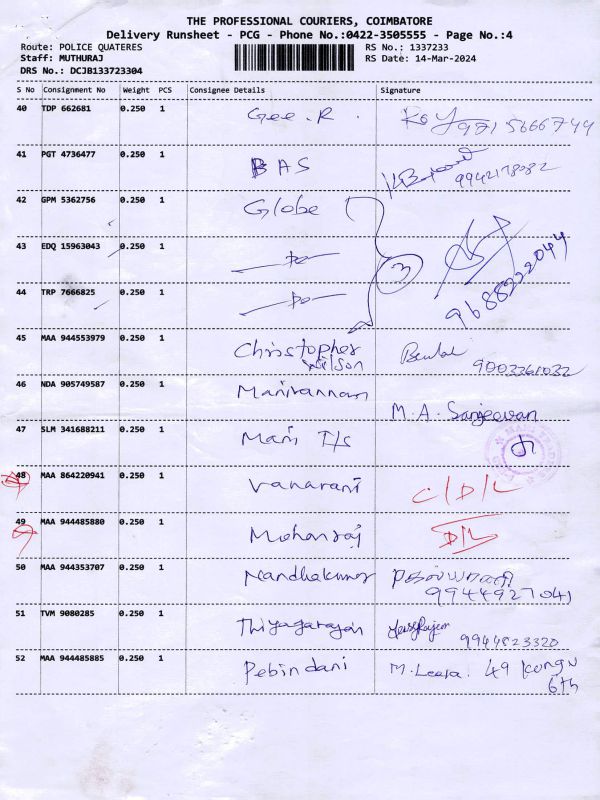 THE PROFESSIONAL COURIERS, COIMBATORE
Delivery Runsheet - PCG - Phone No.:0422-3505555 - Page No.:4
Route: POLICE QUATERES RS No.: 1337233
Staff: MUTHURAJ RS Date: 14-Mar-2024
DRS No.: DCJB133723304
S No Consignment No Weight PCS Consignee Details Signature
40 TDP 662681 0.250 1 Gee. R. Roy 9715666744
41 PGT 4736477 0.250 1 BAS 9942178082
42 GPM 5362756 0.250 1 Globe
43 EDQ 15963043 0.250 1 -Do- 3 9688222044
44 TRP 7666825 0.250 1 -Do-
45 MAA 944553979 0.250 1 Christopher
Wilson 9003261032
46 NDA 905749587 0.250 1 Manivannan M.A. Sanjeevan
47 SLM 341688211 0.250 1 Mani T/s
48 MAA 864220941 0.250 1 Vanarani C/D/L
49 MAA 944485880 0.250 1 Mohanraj D/L
50 MAA 944353707 0.250 1 Nandhakumar
9944927041
51 TVM 9080285 0.250 1 Thiyagarajan 9944823320
52 MAA 944485885 0.250 1 Pebindani M. Leela. 49 Kongu
6th